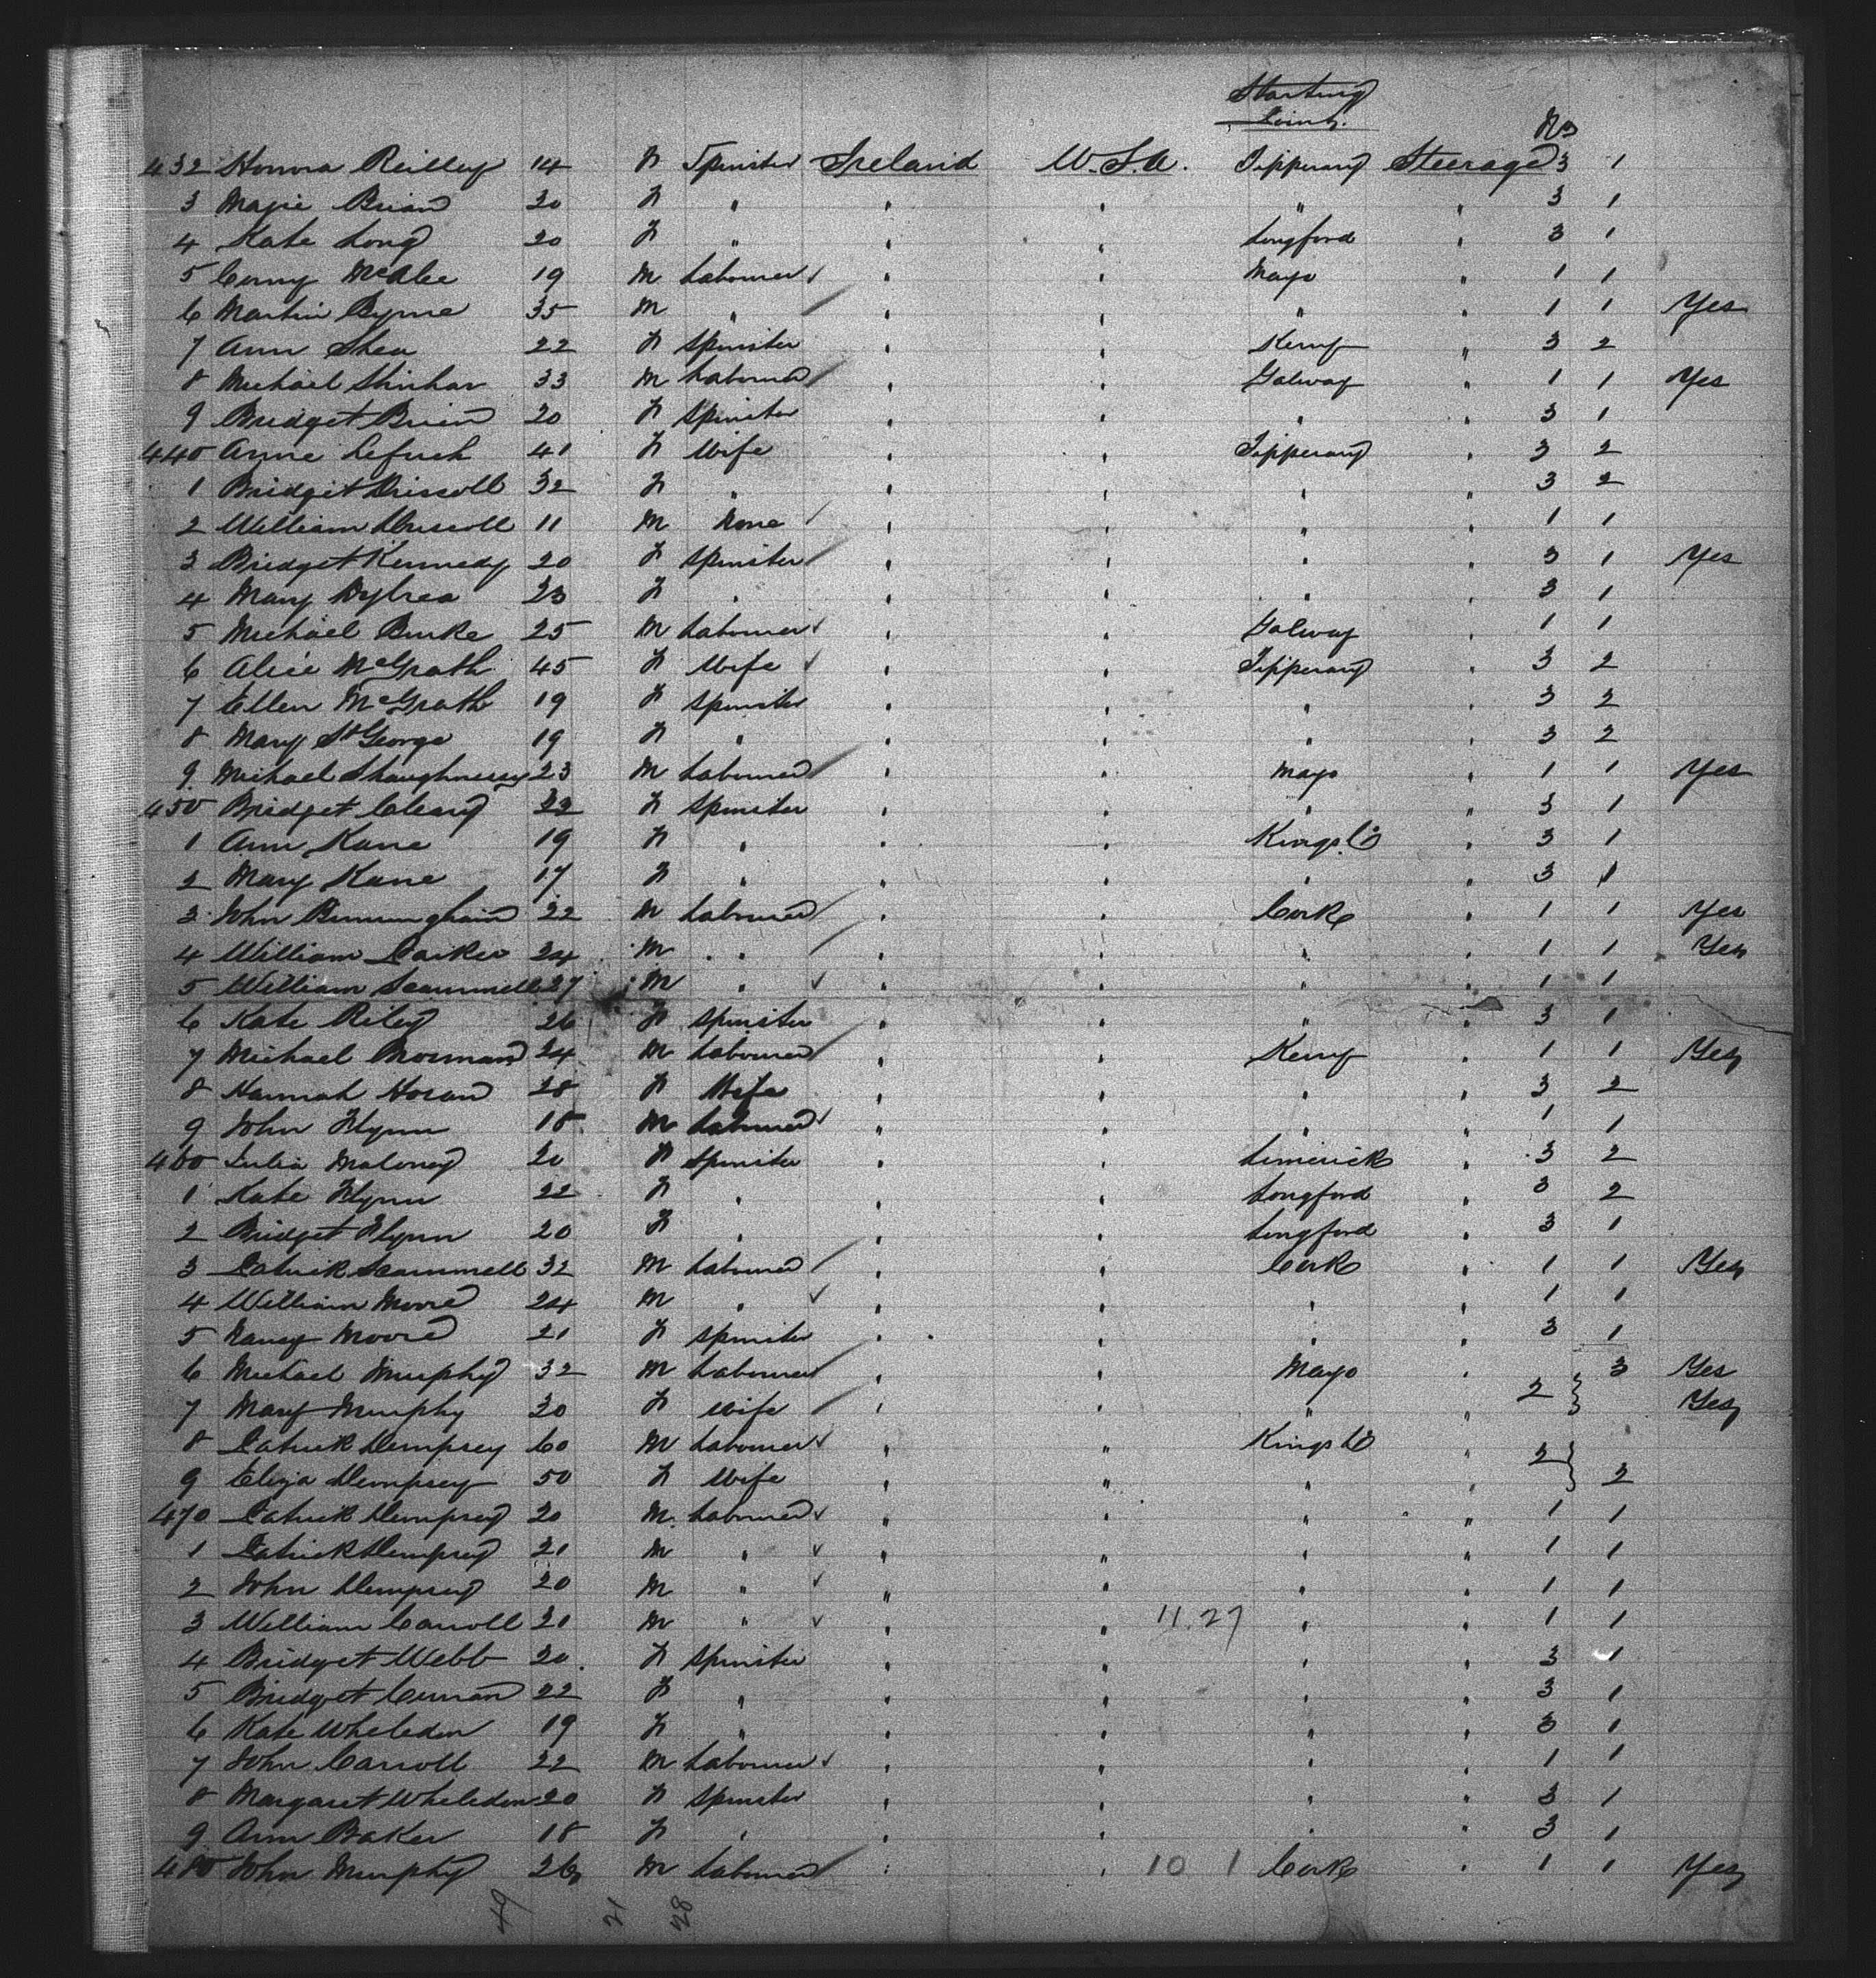 Starting
Point.
No
432 Honora Reilley 14 F Spinster Ireland U.S.A. Tipperary Steerage 3 1
3 Magie Brian 20 F " " " " " 3 1
4 Kate Long 20 F " " " Longford " 3 1
5 McAlee 19 M Labourer " " Mayo " 1 1
6 Martin Byrne 35 M " " " " " 1 1 Yes
7 Ann Shea 22 F Spinster " " Kerry " 3 2
8 Michael 33 M Labourer " " Galway " 1 1 Yes
9 Bridget Brien 20 F Spinster " " " " 3 1
440 Anne 41 F Wife " " Tipperary " 3 2
1 Bridget Driscoll 32 F " " " " " 3 2
2 William Driscoll 11 M None " " " " 1 1
3 Bridget Kennedy 20 F Spinster " " " " 3 1 Yes
4 Mary 23 F " " " " " 3 1
5 Michael Burke 25 M Labourer " " Galway " 1 1
6 Alice McGrath 45 F Wife " " Tipperary " 3 2
7 Ellen McGrath 19 F Spinster " " " " 3 2
8 Mary St George 19 F " " " " " 3 2
9 Michael Shaughnessy 23 M Labourer " " Mayo " 1 1 Yes
450 Bridget Cleary 22 F Spinster " " " " 3 1
1 Ann Kane 19 F " " " Kings Co " 3 1
2 Mary Kane 17 F " " " " " 3 1
3 John Bermingham 22 M Labourer " " Cork " 1 1 Yes
4 William Parker 24 M " " " " " 1 1 Yes
5 William Scammell 27 M " " " " " 1 1
6 Kate Riley 26 F Spinster " " " " 3 1
7 Michael 24 M Labourer " " Kerry " 1 1 Yes
8 Hannah Horan 28 F Wife " " " " 3 2
9 John Flynn 18 M Labourer " " " " 1 1
460 Julia Maloney 20 F Spinster " " Limerick " 3 2
1 Kate Flynn 22 F " " " Longford " 3 2
2 Bridget Flynn 20 F " " " Longford " 3 1
3 Patrick Scammell 32 M Labourer " " Cork " 1 1 Yes
4 William Moore 24 M " " " " " 1 1
5 Nancy Moore 21 F Spinster " " " " 3 1
6 Michael Murphy 32 M Labourer " " Mayo " 3 Yes
7 Mary Murphy 30 F Wife " " " " 2 Yes
8 Patrick Dempsey 60 M Labourer " " Kings Co "
9 Eliza Dempsey 50 F Wife " " " " 2 2
470 Patrick Dempsey 20 M Labourer " " " " 1 1
1 Patrick Dempsey 21 M " " " " " 1 1
2 John Dempsey 20 M " " " " " 1 1
3 William Carroll 21 M " " " 11.27 " " 1 1
4 Bridget Webb 20 F Spinster " " " " 3 1
5 Bridget Curran 22 F " " " " " 3 1
6 Kate Wheledon 19 F " " " " " 3 1
7 John Carroll 22 M Labourer " " " " 1 1
8 Margaret Wheledon 20 F Spinster " " " " 3 1
9 Ann Baker 18 F " " " " " 3 1
480 John Murphy 26 M Labourer " " 10 1 Cork " 1 1 Yes
49 21 28